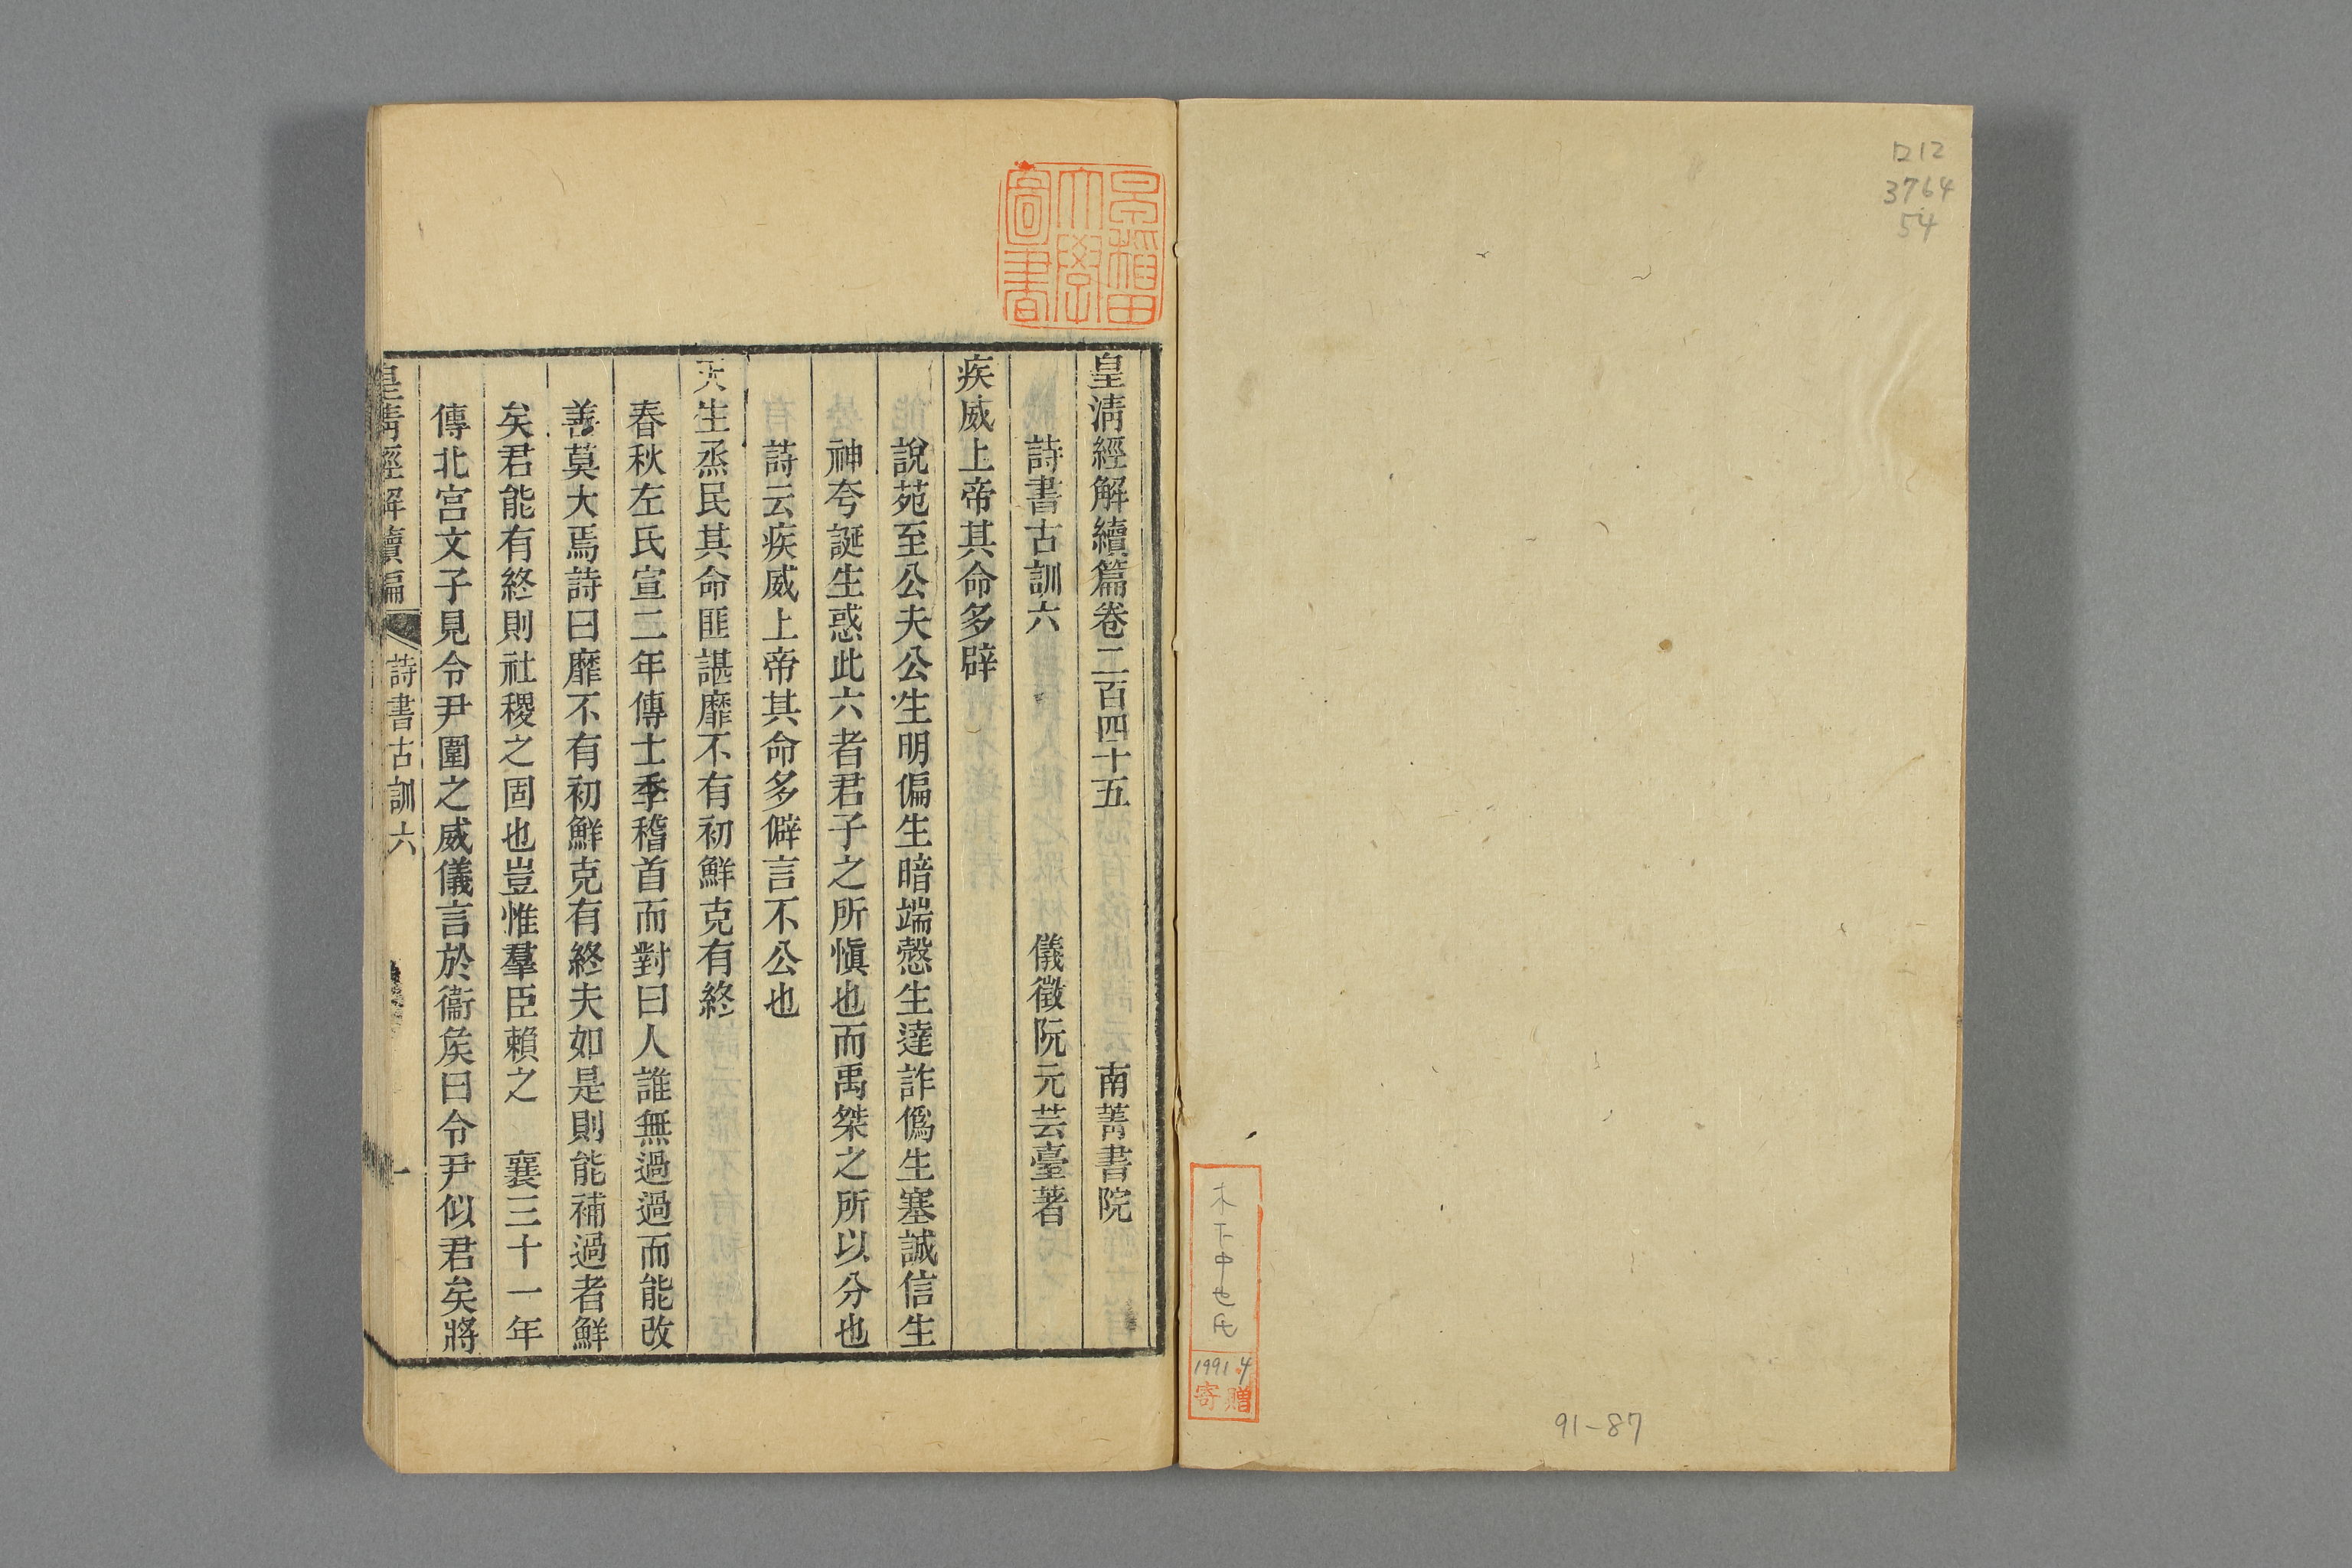 D12
3764
54
木下中也氏
1991.4
寄贈
91-87
早稲田
大學
圖書
皇清經解續篇卷二百四十五 南菁書院
詩書古訓六 儀徵阮元芸臺著
疾威上帝其命多辟
說苑至公夫公生明偏生暗端愨生達詐僞生塞誠信生
神夸誕生惑此六者君子之所愼也而禹桀之所以分也
詩云疾威上帝其命多僻言不公也
天生烝民其命匪諶靡不有初鮮克有終
春秋左氏宣二年傳士季稽首而對曰人誰無過過而能改
善莫大焉詩曰靡不有初鮮克有終夫如是則能補過者鮮
矣君能有終則社稷之固也豈惟羣臣賴之 襄三十一年
傳北宮文子見令尹圍之威儀言於衞矦曰令尹似君矣將
皇清經解續編 詩書古訓六 一